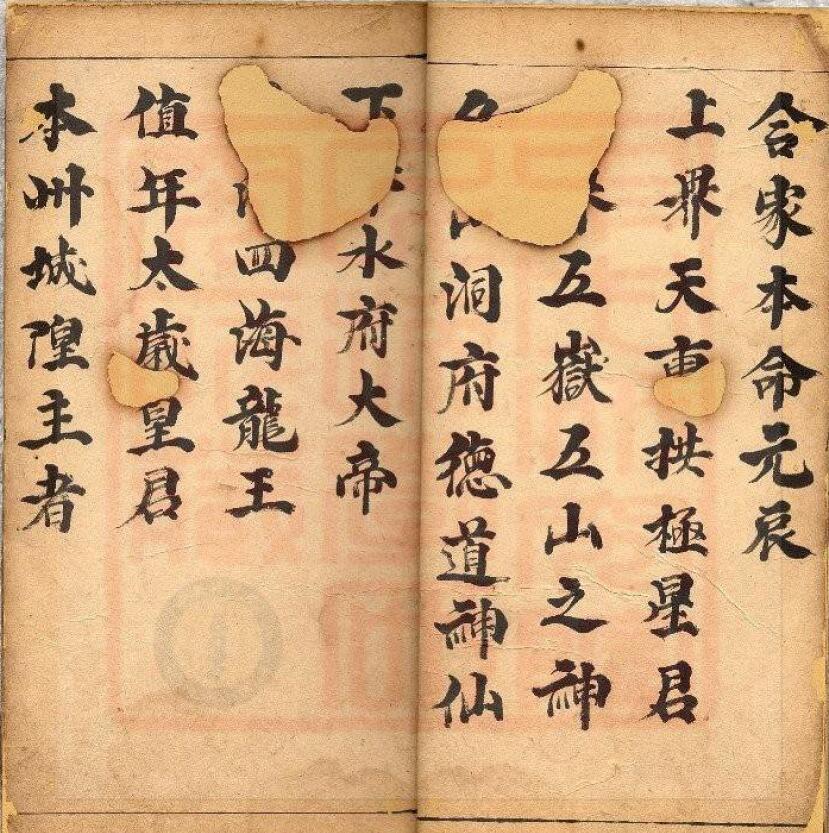 合家本命元辰
上界天拱極星君
五嶽五山之神
洞府徳道神仙
下水府大帝
四海龍王
值年太歲皇君
本州城隍主者